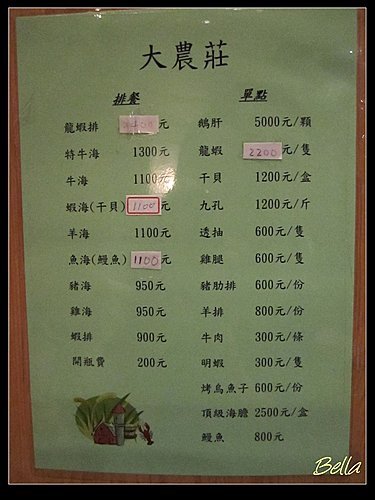 大農莊
排餐
龍蝦排 元
特牛海 1300元
牛海 1100元
蝦海(干貝) 1100元
羊海 1100元
魚海(鰻魚) 1100元
豬海 950元
雞海 950元
蝦排 900元
開瓶費 200元
單點
鵝肝 5000元/顆
龍蝦 2200元/隻
干貝 1200元/盒
九孔 1200元/斤
透抽 600元/隻
雞腿 600元/隻
豬肋排 600元/份
羊排 800元/份
牛肉 300元/條
明蝦 300元/隻
烤烏魚子 600元/份
頂級海膽 2500元/盒
鰻魚 800元
Bella